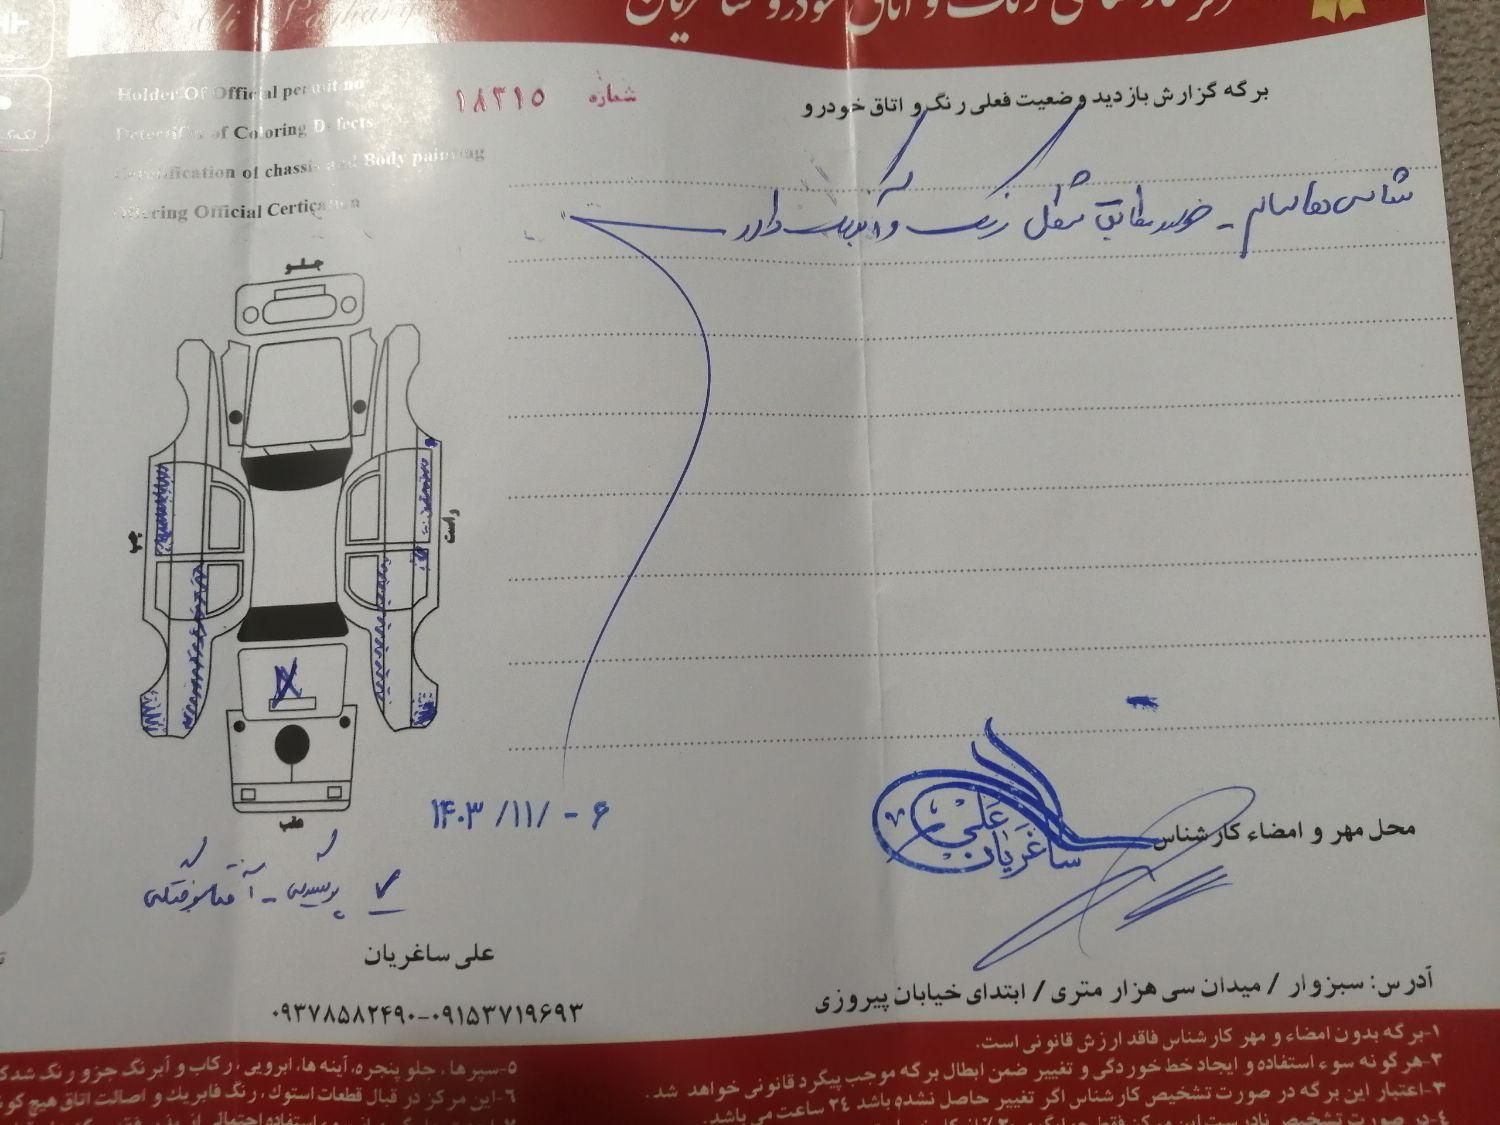 مرکز کارشناسی رنگ و اتاق خودرو ساغریان
Holder Of Official permit no
Detectifis of Coloring Defects
Certification of chassis and Body painting
Offering Official Certication
شماره ۱۸۳۱۵
برگه گزارش بازدید وضعیت فعلی رنگ و اتاق خودرو
شاسی ها سالم - خودرو مطابق شکل رنگ و آبرنگ دارد
جلو
چپ
راست
عقب
۱۴۰۳/۱۱/-۶
علی ساغریان
محل مهر و امضاء کارشناس
علی ساغریان
۰۹۳۷۸۵۸۲۴۹۰-۰۹۱۵۳۷۱۹۶۹۳
آدرس: سبزوار / میدان سی هزار متری / ابتدای خیابان پیروزی
۱-برگه بدون امضاء و مهر کارشناس فاقد ارزش قانونی است.
۲-هرگونه سوء استفاده و ایجاد خط خوردگی و تغییر ضمن ابطال برگه موجب پیگرد قانونی خواهد شد.
۳-اعتبار این برگه در صورت تشخیص کارشناس اگر تغییر حاصل نشده باشد ۲۴ ساعت می باشد.
۴-در صورت تشخیص نادرست این مرکز فقط
۵-سپرها، جلو پنجره، آینه ها، ابرویی، رکاب و آبرنگ جزو رنگ شدگی
۶-این مرکز در قبال قطعات استوک، رنگ فابریک و اصالت اتاق هیچ